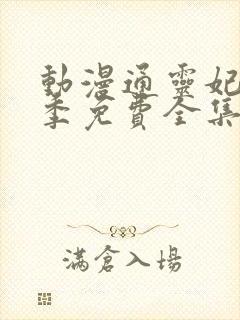 動漫通靈妃
季免費全集
滿倉入場